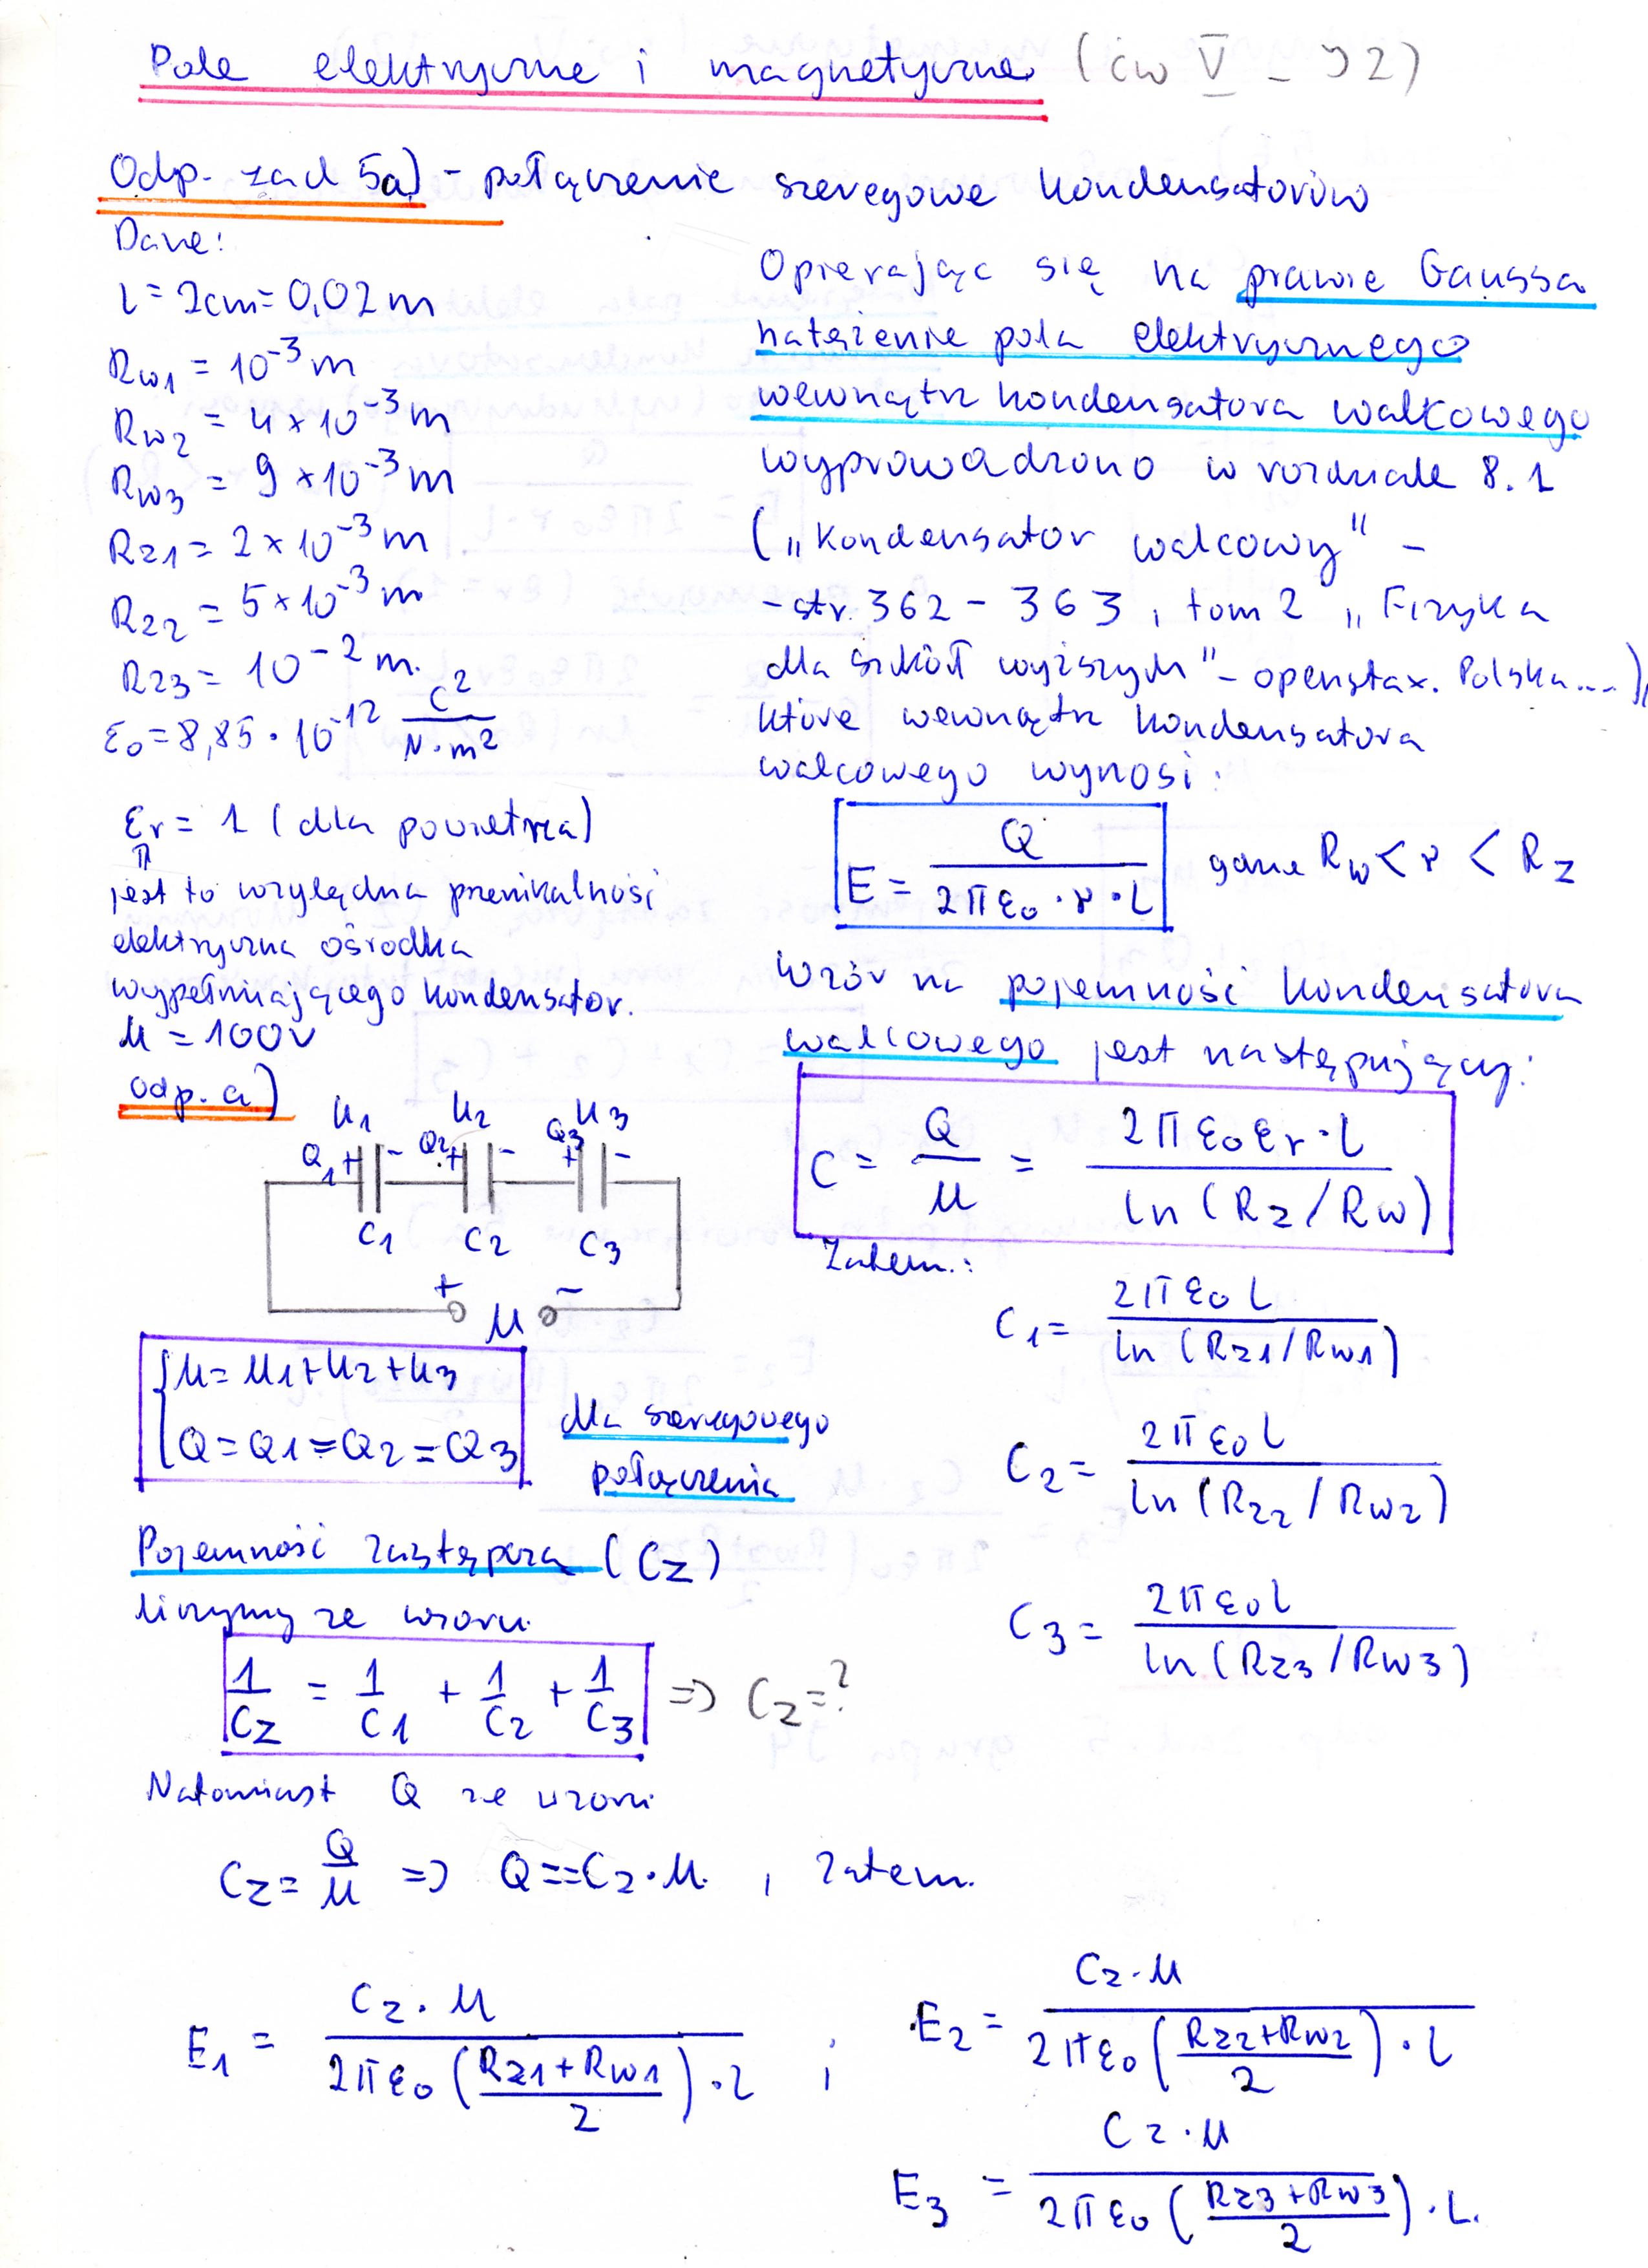 Pole elektryczne i magnetyczne (ćw V - J2)
Odp. zad 5a) - połączenie szeregowe kondensatorów
Dane:
l = 2cm = 0,02 m
Rw1 = 10⁻³ m
Rw2 = 4 × 10⁻³ m
Rw3 = 9 × 10⁻³ m
Rz1 = 2 × 10⁻³ m
Rz2 = 5 × 10⁻³ m
Rz3 = 10⁻² m.
ε₀ = 8,85 · 10⁻¹² C²/N·m²
εr = 1 (dla powietrza)
⇑
jest to względna przenikalność
elektryczna ośrodka
wypełniającego kondensator.
U = 100V
Odp. a)
U1 U2 U3
Q1 + - Q2 + - Q3 + -
C1 C2 C3
+ U -
{ U = U1 + U2 + U3
Q = Q1 = Q2 = Q3
dla szeregowego
połączenia
Pojemność zastępczą (Cz)
liczymy ze wzoru
1/Cz = 1/C1 + 1/C2 + 1/C3 => Cz = ?
Opierając się na prawie Gaussa
natężenie pola elektrycznego
wewnątrz kondensatora walcowego
wyprowadzono w rozdziale 8.1
(„Kondensator walcowy" -
- str. 362 - 363, tom 2 „Fizyka
dla szkół wyższych" - openstax. Polska...),
które wewnątrz kondensatora
walcowego wynosi:
E = Q / 2πε₀ · r · l gdzie Rw < r < Rz
Wzór na pojemność kondensatora
walcowego jest następujący:
C = Q/U = 2πε₀εr · l / ln (Rz/Rw)
Zatem:
C1 = 2πε₀ l / ln (Rz1/Rw1)
C2 = 2πε₀ l / ln (Rz2/Rw2)
C3 = 2πε₀ l / ln (Rz3/Rw3)
Natomiast Q ze wzoru
Cz = Q/U => Q == Cz · U. , zatem.
E1 = Cz · U / 2πε₀ ((Rz1 + Rw1)/2) · l ;
E2 = Cz · U / 2πε₀ ((Rz2 + Rw2)/2) · l
E3 = Cz · U / 2πε₀ ((Rz3 + Rw3)/2) · l.